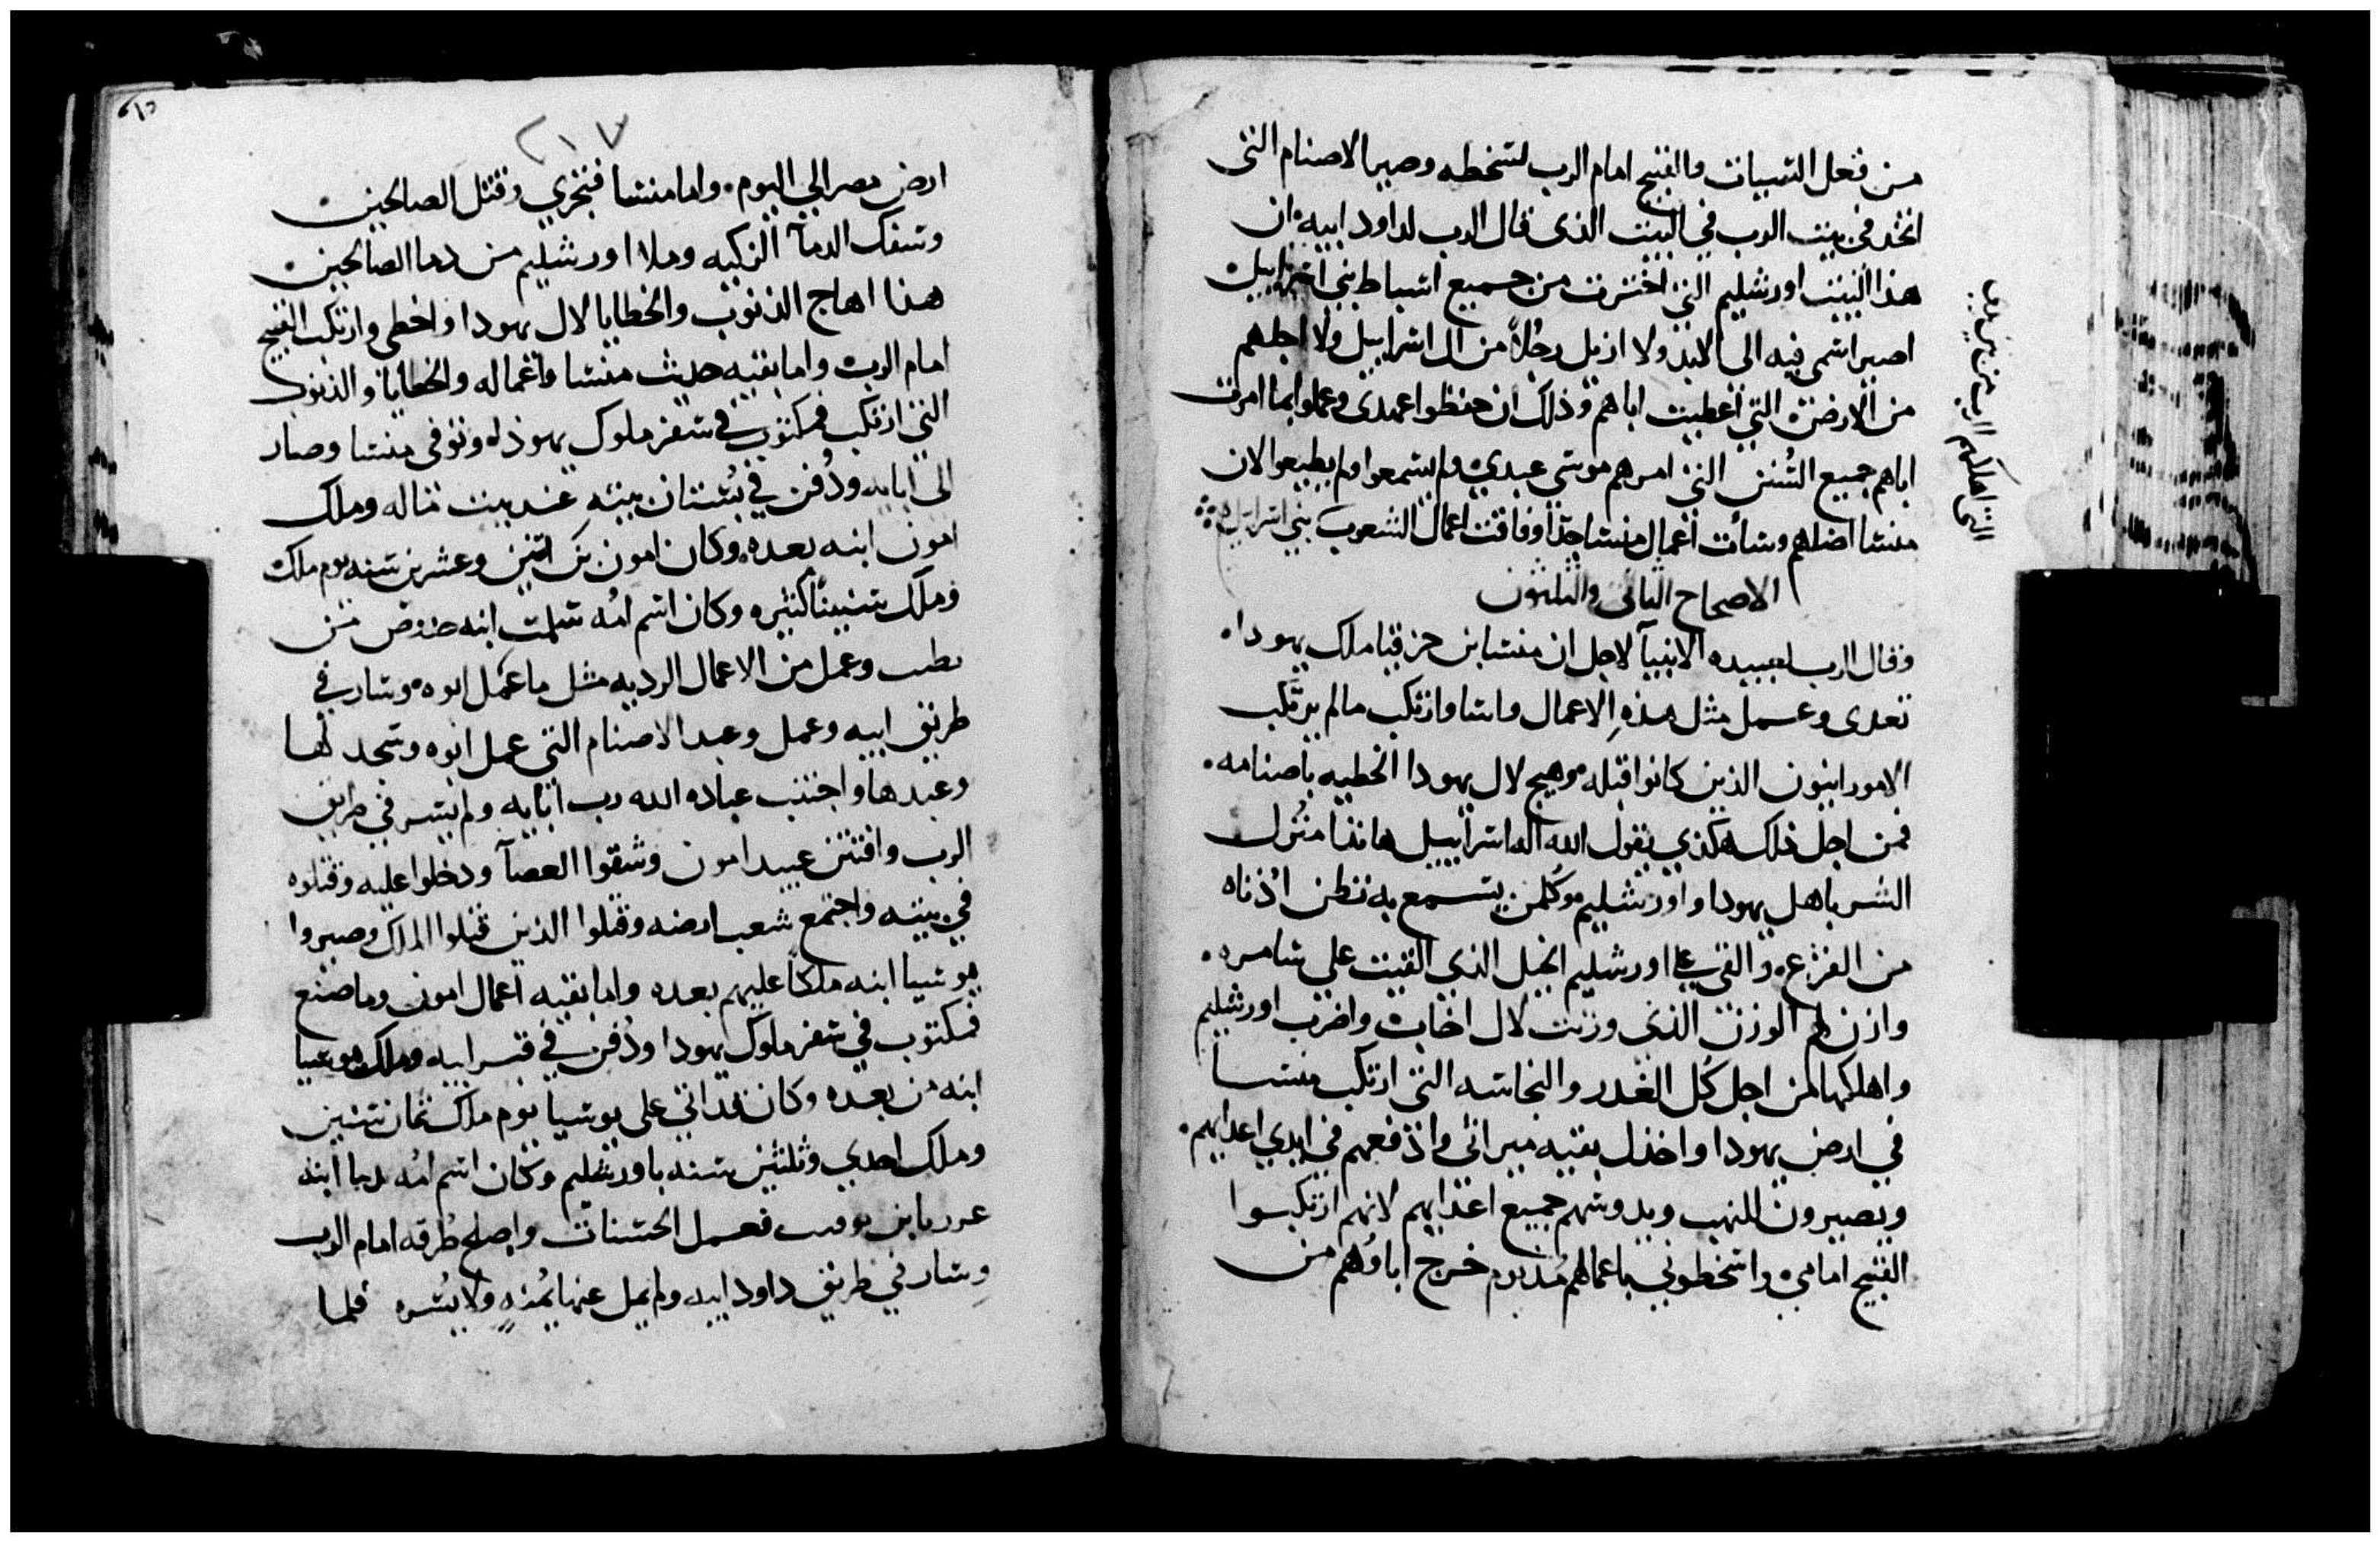 من فعل السيات والقبيح امام الرب لتسخطه وصير الاصنام التى
اتخذ في بيت الرب في البيت الذى قال الرب لداود ابيه ان
هذا البيت اورشليم التى اخترت من جميع اسباط بني اسراييل
اصير اسمى فيه الى الابد ولا ازيل رجلاً من ال اسراييل ولا اجلهم
من الارض التى اعطيت اباهم وذلك ان حفظوا عهدى وعملوا بما امرت
اباهم جميع السُنن التى امرهم موسى عبدي ولم يسمعوا ولم يطيعوا لان
منسا اضلهم وسأت اعمال منسا جداً وفاقت اعمال الشعوب بني اسراييل
التى اهلكهم الرب من بين يدي
الاصحاح الثانى والثلثون
وقال الرب لعبيده الانبيآ لاجل ان منسا ابن حزقيا ملك يهودا
تعدى وعمل مثل هذهِ الاعمال واسا وارتكب مالم يرتكب
الامورانيون الذين كانوا قبله وهيج لال يهودا الخطيه باصنامه
فمن اجل ذلك هكذي يقول الله اله اسراييل هانذا منزل
الشر باهل يهودا واورشليم وكلمن يسمع به تطن اذناه
من الفزع والقي على اورشليم الحبل الذي القيت على سامره
وازن لهم الوزن الذى وزنت لال اخاب واضرب اورشليم
واهلكها من اجل كل الغدر والنجاسه التى ارتكب منسا
في ارض يهودا واخذل بقيه ميراثى وادفعهم في ايدي اعدايهم
ويصيرون للنهب ويدوسهم جميع اعدايهم لانهم ارتكبوا
القبيح امامي واسخطوني باعمالهم مُذ يوم خرج اباوهم من
٢١٧
ارض مصر الي اليوم واما منسا فتجرى وقتل الصالحين
وسفك الدمآ الزكيه وملا اورشليم من دما الصالحين
هذا اهاج الذنوب والخطايا لال يهودا واخطى وارتكب القبيح
امام الرب واما بقيه حديث منسا واعماله والخطايا والذنوب
التى ارتكب فمكتوب في سفر ملوك يهوذا وتوفى منسا وصار
الى ابايه ودُفن في بُستان بيته عند بيت وملك
امون ابنه بعده وكان امون بن اثنين وعشرين سنه يوم ملك
وملك سنيناً كثيره وكان اسم امُه ابنه من
وعمل من الاعمال الرديه مثل ما عمل ابوه وسار في
طريق ابيه وعمل وعبد الاصنام التى عمل ابوه وسجد لها
وعبدها واجتنب عباده الله رب ابايه ولم يسر في طريق
الرب وافتتن عبيد امون وشقوا العصآ ودخلوا عليه وقتلوه
في بيته واجتمع شعب ارضه وقتلوا الذين قتلوا الملك وصيروا
يوشيا ابنه ملكاً عليهم بعده واما بقيه اعمال امون وما صنع
فمكتوب في سفر ملوك يهودا ودُفن في قبر ابيه وملك يوشيا
ابنه من بعده وكان قد اتي على يوشيا يوم ملك ثمان سنين
وملك احدي وثلثين سنه باورشليم وكان اسم امُه ابنه
فعمل الحسنات واصلح طُرقه امام الرب
وسار في طريق داود ابيه ولم يمل عنها يُمنهٍ ولا يُسره فلما